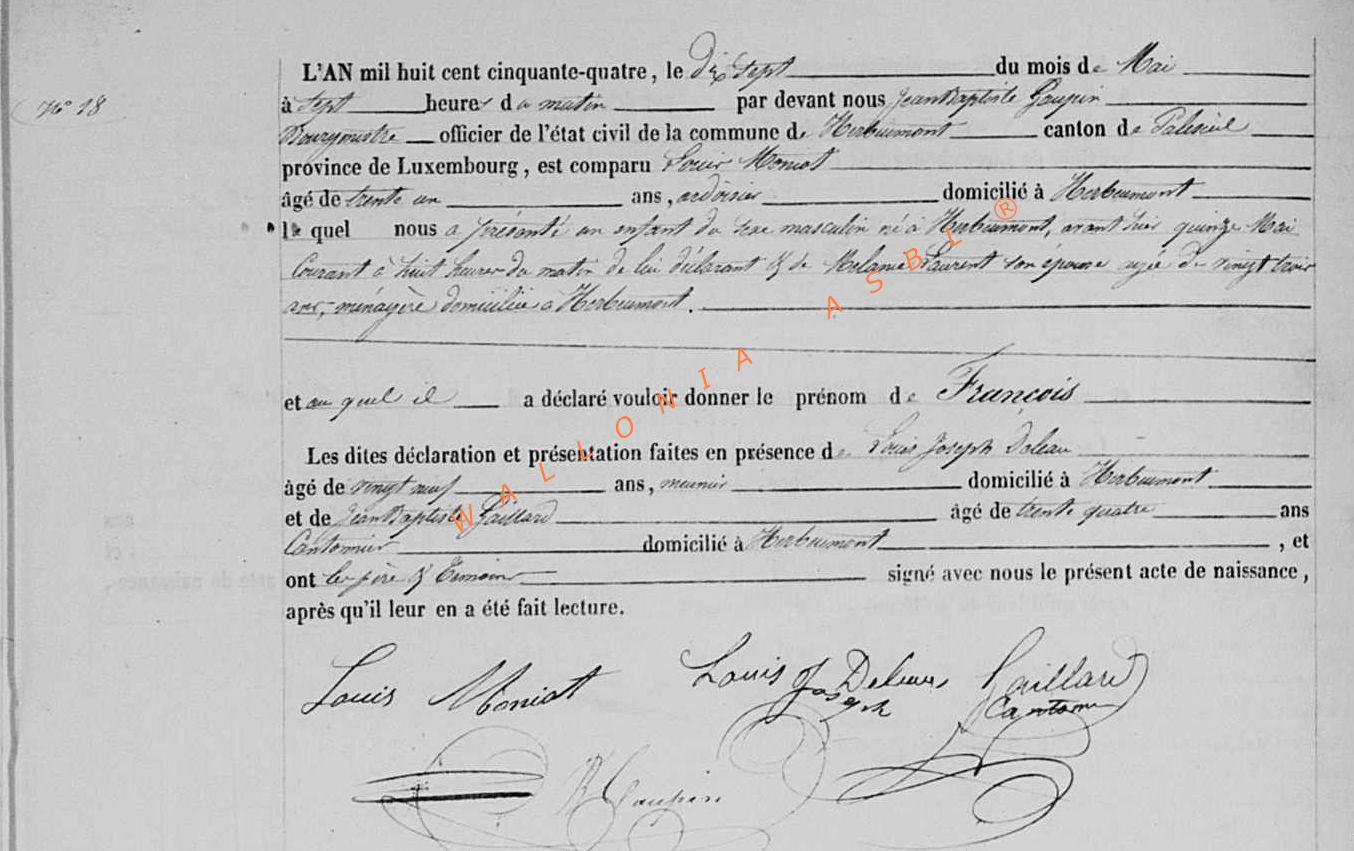 N° 18
L'AN mil huit cent cinquante-quatre, le dix sept du mois de Mai
à sept heures du matin par devant nous Jean Baptiste Goupin
Bourgmestre officier de l'état civil de la commune de Herbeumont canton de Paliseul
province de Luxembourg, est comparu Louis Moniot
âgé de trente un ans, ardoisier domicilié à Herbeumont
le quel nous a présenté un enfant du sexe masculin né à Herbeumont, avant hier quinze Mai
Courant à huit heures du matin de lui déclarant & de Melanie Laurent son épouse agée de vingt trois
ans, ménagère domiciliée à Herbeumont.
et au quel il a déclaré vouloir donner le prénom de François
Les dites déclaration et présentation faites en présence de Louis Joseph
âgé de vingt neuf ans, meunier domicilié à Herbeumont
et de Jean Baptiste Gaillard âgé de trente quatre ans
Cantonnier domicilié à Herbeumont, et
ont les père & Temoins signé avec nous le présent acte de naissance,
après qu'il leur en a été fait lecture.
Louis Moniot Louis Joseph Gaillard
WALLONIA ASBL ®